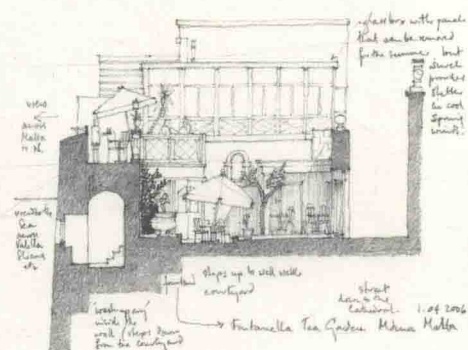 glass box with panels
that can be removed
for the summer but
provides
shelter
in cool
Spring
winds.
view
across
Malta
to N.
views to the
Sea
Valletta
Sliema
etc
fountain
steps up to well
courtyard
inside the
wall / steps down
from tea courtyard
street
down to the
Cathedral.
1.04 2006
Fontanella Tea Garden Mdina Malta